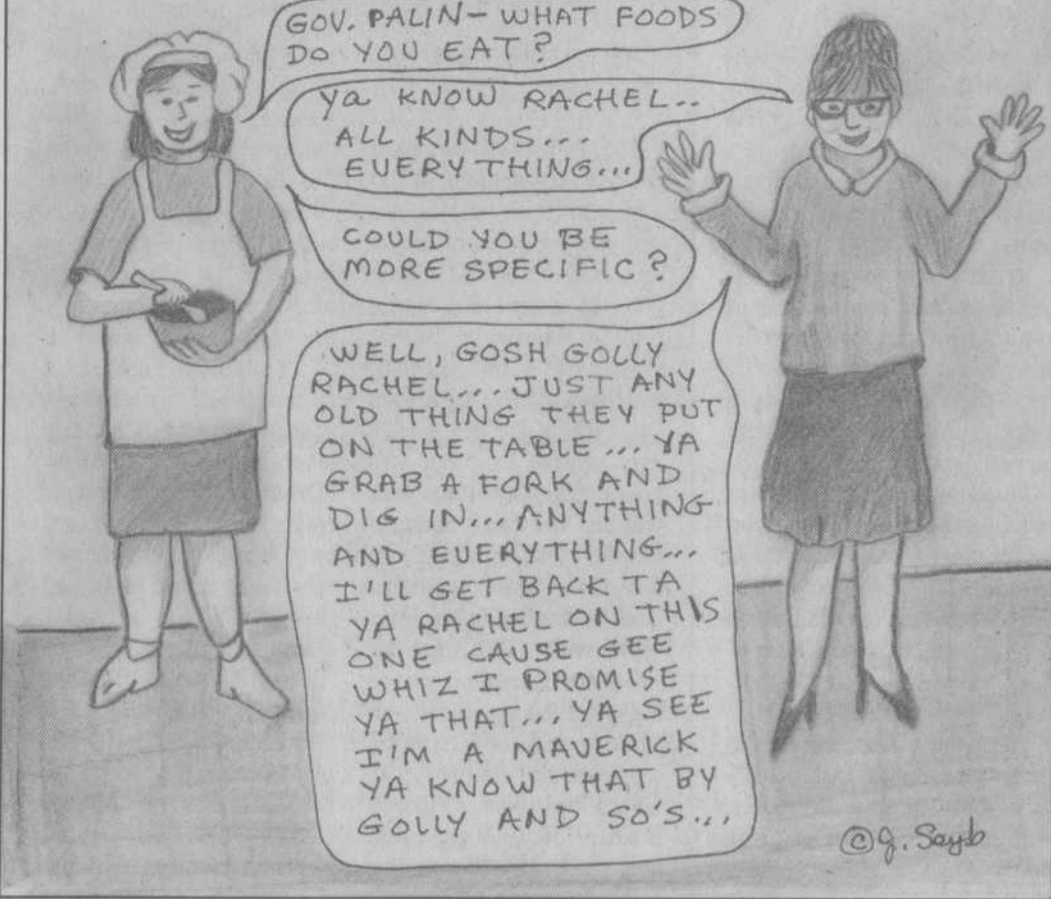 GOV. PALIN- WHAT FOODS
DO YOU EAT?
Ya KNOW RACHEL..
ALL KINDS...
EVERYTHING...
COULD YOU BE
MORE SPECIFIC?
WELL, GOSH GOLLY
RACHEL... JUST ANY
OLD THING THEY PUT
ON THE TABLE... YA
GRAB A FORK AND
DIG IN... ANYTHING
AND EVERYTHING...
I'LL GET BACK TA
YA RACHEL ON THIS
ONE CAUSE GEE
WHIZ I PROMISE
YA THAT... YA SEE
I'M A MAVERICK
YA KNOW THAT BY
GOLLY AND SO'S...